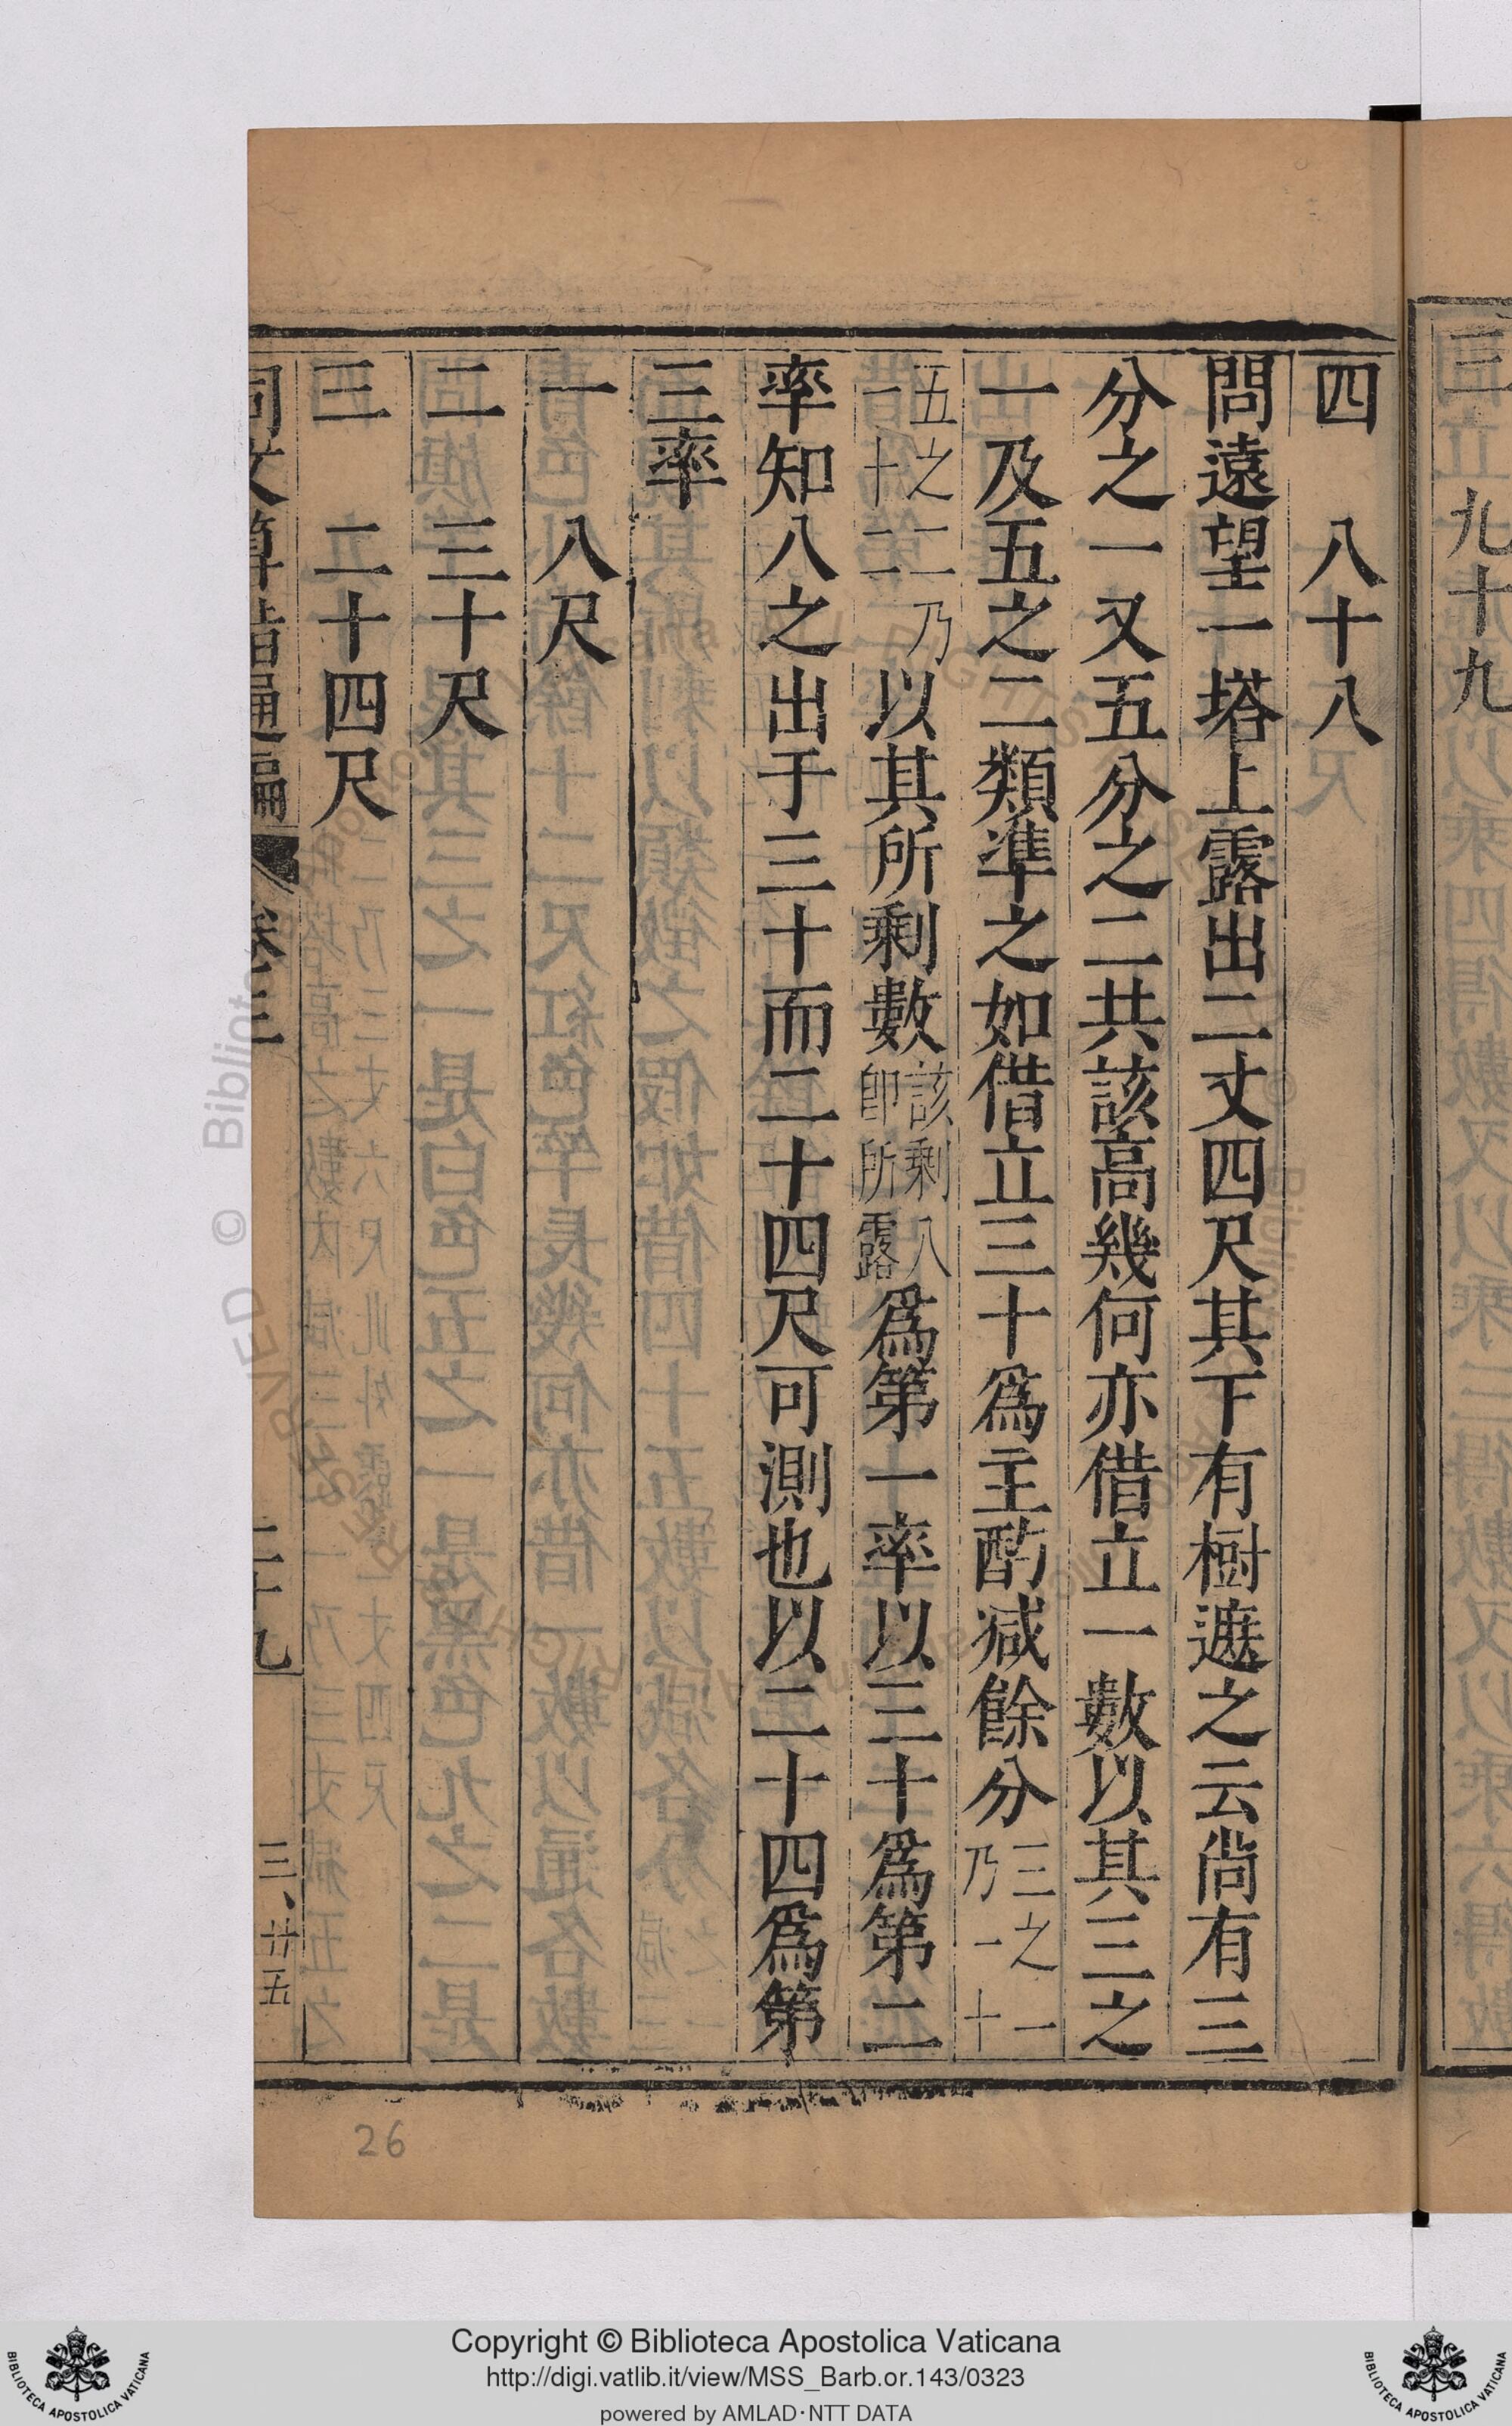 四　八十八
問遠望一塔上露出二丈四尺其下有樹遮之云尚有三
分之一又五分之二共該高幾何亦借立一數以其三之
一及五之二類準之如借立三十爲主酌減餘分三之一乃一十
五之二乃一十二以其所剩數該剩八即所露爲第一率以三十爲第二
率知八之出于三十而二十四尺可測也以二十四爲第
三率
一　八尺
二　三十尺
三　二十四尺
同文算指通編　卷三　二十九　三、廿五
九十九
26
Copyright © Biblioteca Apostolica Vaticana
http://digi.vatlib.it/view/MSS_Barb.or.143/0323
powered by AMLAD·NTT DATA
BIBLIOTECA APOSTOLICA VATICANA
BIBLIOTECA APOSTOLICA VATICANA